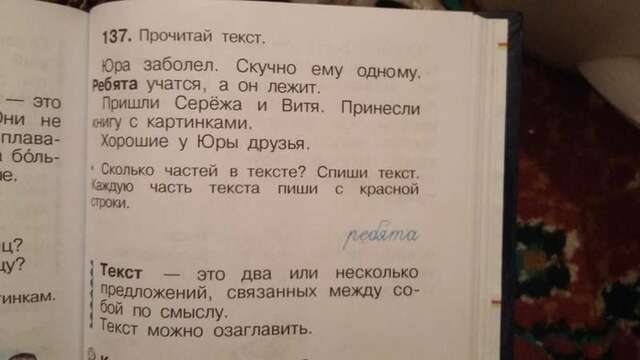 — это
Они не
плава-
бо́ль-
ше.
ц?
цу?
тинкам.
137. Прочитай текст.
Юра заболел. Скучно ему одному.
Ребята учатся, а он лежит.
Пришли Серёжа и Витя. Принесли
книгу с картинками.
Хорошие у Юры друзья.
• Сколько частей в тексте? Спиши текст.
Каждую часть текста пиши с красной
строки.
ребята
Текст — это два или несколько
предложений, связанных между со-
бой по смыслу.
Текст можно озаглавить.